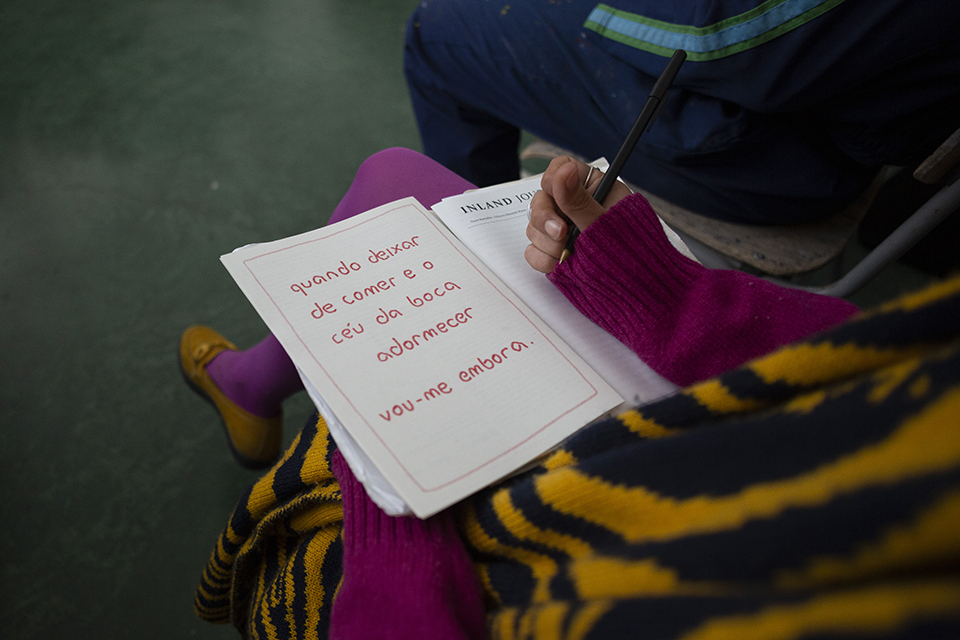 quando deixar
de comer e o
céu da boca
adormecer
vou-me embora.
INLAND